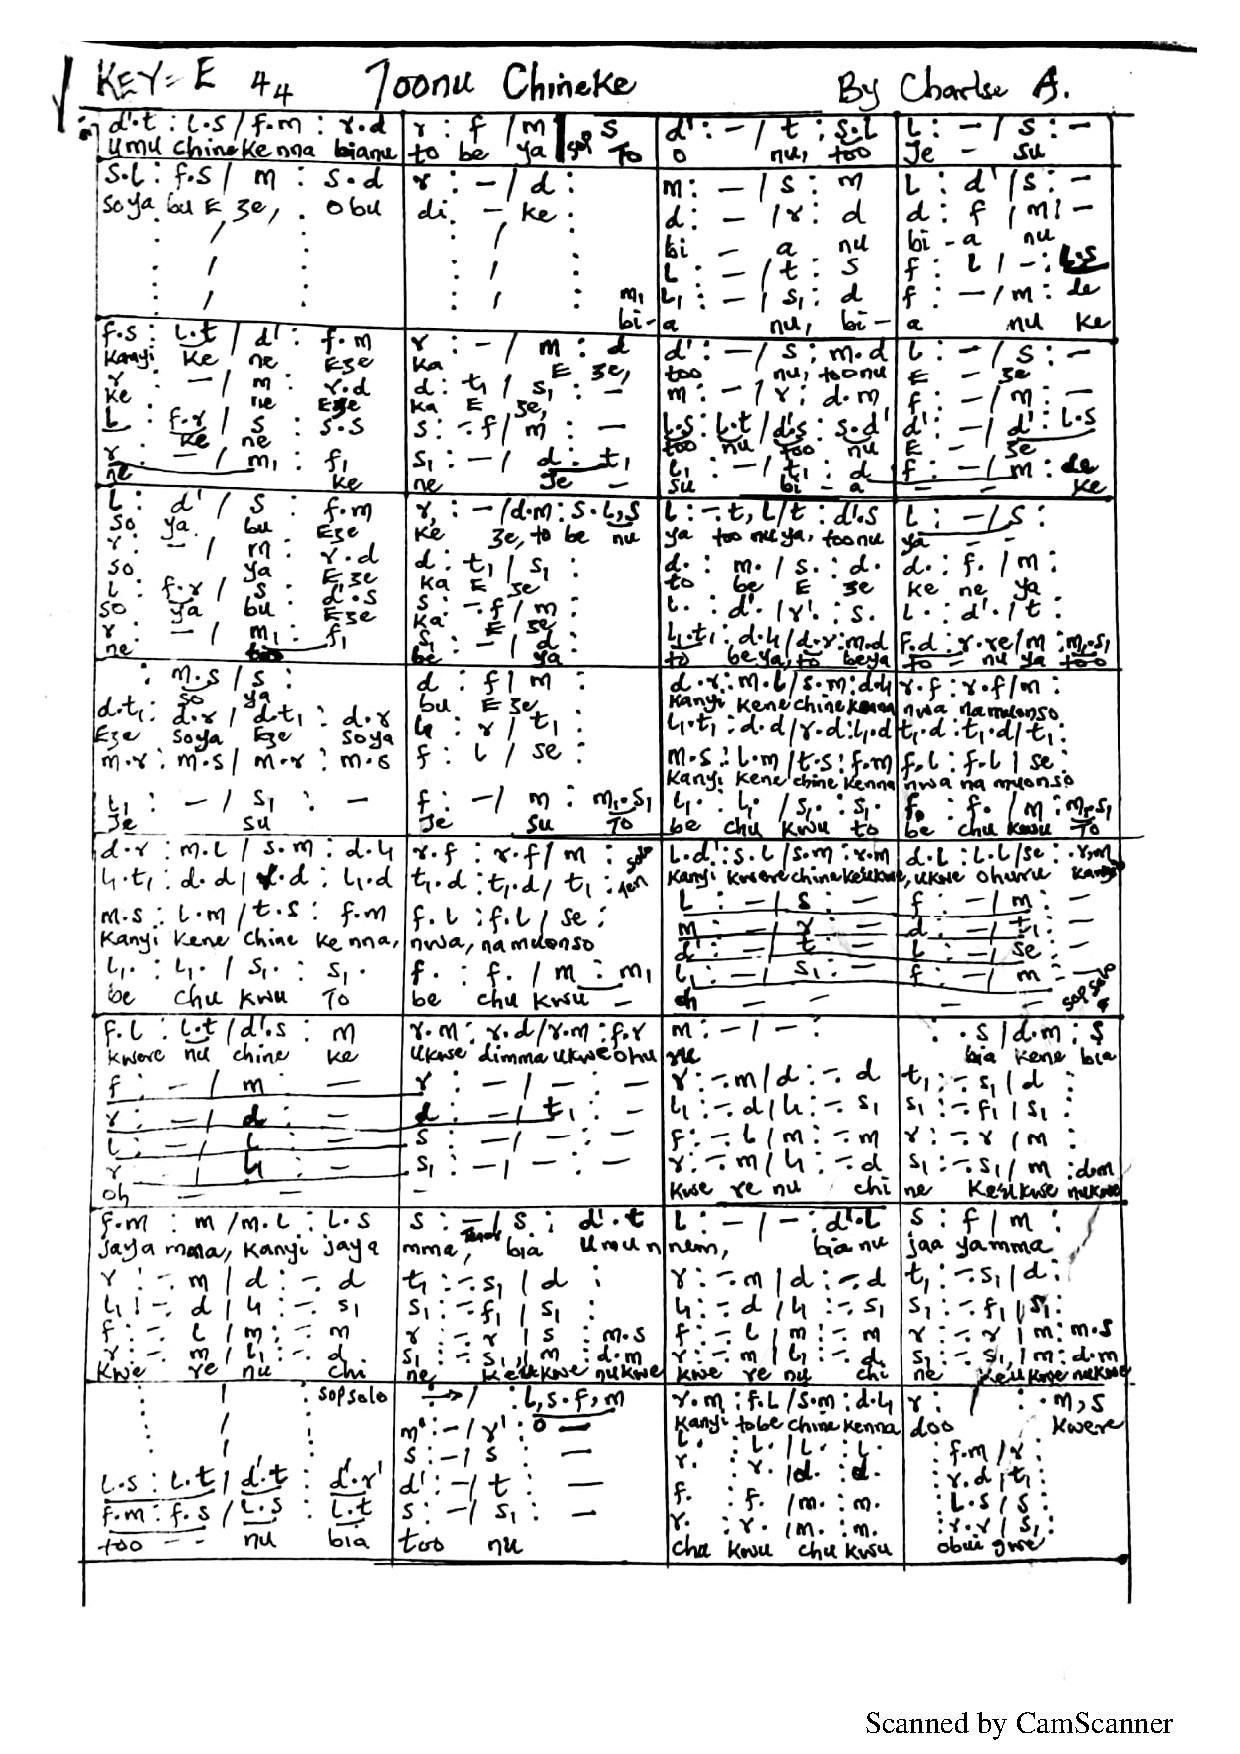 KEY= E 4/4 Toonu Chineke By Charlse A.
:m d'.t : l.s / f.m : r.d | r : f / m | sop s | d' : - / t : s.l | L : - / s : -
Umu chineke nna bianu | to be ya To | o nu, too | Je - su
s.l : f.s / m : s.d | r : - / d : | m : - / s : m | L : d' / s : -
soya bu Eze, . Obu | di - ke | d : - / r : d | d : f / m : -
bi - a nu | bi - a nu
L : - / t : s | f : l / - : l.s
m₁ | l₁ : - / s₁ : d | f : - / m : de
bi- | a nu, bi - | a nu ke
f.s : l.t / d' : f.m | r : - / m : d | d' : - / s : m.d | L : - / s : -
Kanyi ke ne Eze | ka Eze, | too nu, toonu | E - ze
r : - / m : r.d | d : t₁ / s₁ : - | m : - / r : d.m | f : - / m : -
ke ne Eze | ka E ze,
L : f.r / s : s.s | s : -.f / m : - | l.s : l.t / d'.s : s.d' | d' : - / d' : l.s
ke ne | too nu too nu | E - ze
r : - / m₁ : f₁ | s₁ : - / d : t₁ | l₁ : - / t₁ : d | f : - / m : de
ne ke | ne Je - | su bi - a | - - ke
L : d' / s : f.m | r : - / d.m : s.l,s | L : -.t, L / t : d'.s | L : - / s :
so ya bu Eze | ke ze, to be nu | ya too nu ya, toonu | ya -
r : - / m : r.d | d : t₁ / s₁ : | d. : m. / s. : d. | d. : f. / m :
so ya Eze | ka E ze | to be E ze | ke ne ya
L : f.r / s : d'.s | s : -.f / m : | l. : d'. / r' : s. | L. : d'. / t :
so ya bu Eze | ka E ze
r : - / m₁ : f₁ | s₁ : - / d | l₁.t₁ : d.l₁ / d.r : m.d | f.d : r.re / m : m₁.s₁
ne | be ya | to be ya, to beya | to - nu ya too
: m.s / s : | d : f / m : | d.r : m.l / s.m : d.l₁ | r.f : r.f / m :
so ya | bu Eze | Kanyi kene chine kenna | nwa na muonso
d.t₁ : d.r / d.t₁ : d.r | l₁ : r / t₁ : | l₁.t₁ : d.d / r.d : l₁.d | t₁.d : t₁.d / t₁ :
Eze soya Eze soya
m.r : m.s / m.r : m.s | f : l / se : | m.s : l.m / t.s : f.m | f.l : f.l / se :
Kanyi kene chine kenna | nwa na muonso
l₁ : - / s₁ : - | f : - / m : m₁.s₁ | l₁. : l₁. / s₁. : s₁. | f. : f. / m : m₁.s₁
Je su | Je su To | be chu kwu to | be chu kwu To
d.r : m.l / s.m : d.l₁ | r.f : r.f / m : sop | l.d' : s.l / s.m : r.m | d.l : l.l / se : .r,m
l₁.t₁ : d.d / r.d : l₁.d | t₁.d : t₁.d / t₁ : | Kanyi kwere chine keukwe, | ukwe ohuru kanyi
m.s : l.m / t.s : f.m | f.l : f.l / se : | L : - / s : - | f : - / m : -
Kanyi kene chine kenna, | nwa, na muonso | m : - / r : - | d : - / t₁ : -
d' : - / t : - | l : - / se : -
l₁. : l₁. / s₁. : s₁. | f. : f. / m : m₁ | l₁ : - / s₁ : - | f : - / m : -
be chu kwu To | be chu kwu - | oh - - - -
f.l : l.t / d'.s : m | r.m : r.d / r.m : f.r | m : - / - : | . s / d.m : s
kwere nu chine ke | ukwe dimma ukwe ohu | ru | bia kene bia
f : - / m : - | r : - / - : - | r : -.m / d : -.d | t₁ : -.s₁ / d :
r : - / d : - | d : - / t₁ : - | l₁ : -.d / l₁ : -.s₁ | s₁ : -.f₁ / s₁ :
l : - / l : - | s : - / - : - | f : -.l / m : -.m | r : -.r / m :
r : - / l₁ : - | s₁ : - / - : - | r : -.m / l₁ : -.d | s₁ : -.s₁ / m : d.m
oh - - - | kwe re nu chi | ne keukwe nukwe
f.m : m / m.l : l.s | s : - / s : d'.t | L : - / - : d'.l | s : f / m :
jaya mma, kanyi jaya | mma, bia Umu n | nem, bia nu | jaa yamma
r : -.m / d : -.d | t₁ : -.s₁ / d : | r : -.m / d : -.d | t₁ : -.s₁ / d :
l₁ : -.d / l₁ : -.s₁ | s₁ : -.f₁ / s₁ : | l₁ : -.d / l₁ : -.s₁ | s₁ : -.f₁ / s₁ :
f : -.l / m : -.m | r : -.r / s : m.s | f : -.l / m : -.m | r : -.r / m : m.s
r : -.m / l₁ : -.d | s₁ : -.s₁ / m : d.m | r : -.m / l₁ : -.d | s₁ : -.s₁ / m : d.m
kwe re nu chi | ne, keukwe nukwe | kwe re nu chi | ne keukwe nukwe
/ : sopsolo | / : l,s.f,m | r.m : f.l / s.m : d.l₁ | r : / : .m,s
/ : | m' : - / r' : o - | Kanyi tobe chine kenna | doo kwere
/ : | s : - / s : - | l. : l. / l. : l. | : f.m / r :
l.s : l.t / d'.t : d'.r' | d' : - / t : - | r. : r. / d. : d. | : r.d / t₁ :
f.m : f.s / l.s : l.t | s : - / s₁ : - | f. : f. / m. : m. | : l.s / s :
r. : r. / m. : m. | : r.r / s₁ :
too - - nu bia | too nu | chu kwu chu kwu | obui gwe
Scanned by CamScanner